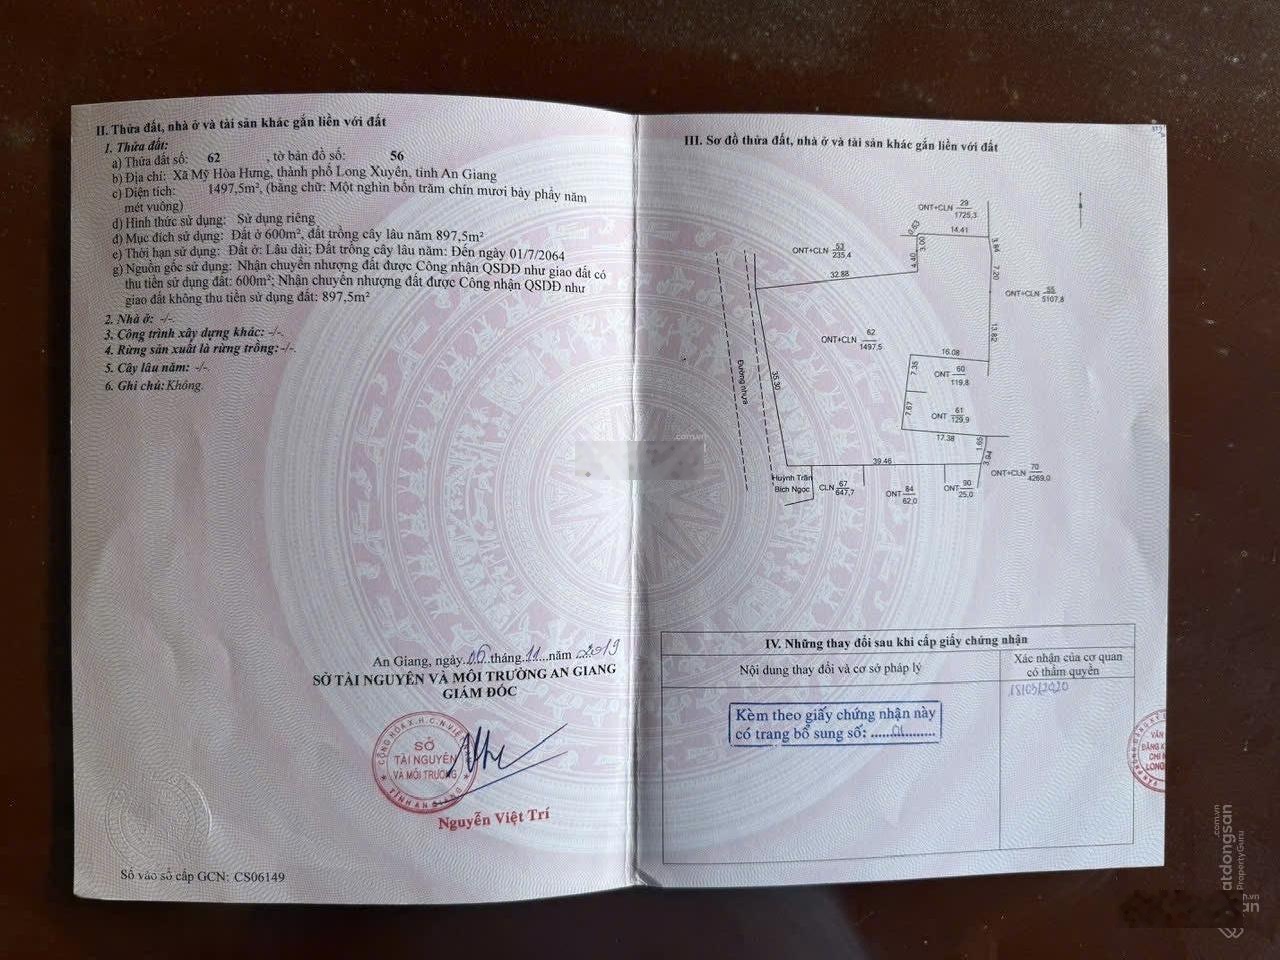 II. Thửa đất, nhà ở và tài sản khác gắn liền với đất
1. Thửa đất:
a) Thửa đất số: 62 , tờ bản đồ số: 56
b) Địa chỉ: Xã Mỹ Hòa Hưng, thành phố Long Xuyên, tỉnh An Giang
c) Diện tích: 1497,5m², (bằng chữ: Một nghìn bốn trăm chín mươi bảy phẩy năm
mét vuông)
d) Hình thức sử dụng: Sử dụng riêng
đ) Mục đích sử dụng: Đất ở 600m², đất trồng cây lâu năm 897,5m²
e) Thời hạn sử dụng: Đất ở: Lâu dài; Đất trồng cây lâu năm: Đến ngày 01/7/2064
g) Nguồn gốc sử dụng: Nhận chuyển nhượng đất được Công nhận QSDĐ như giao đất có
thu tiền sử dụng đất: 600m²; Nhận chuyển nhượng đất được Công nhận QSDĐ như
giao đất không thu tiền sử dụng đất: 897,5m²
2. Nhà ở: -/-.
3. Công trình xây dựng khác: -/-.
4. Rừng sản xuất là rừng trồng: -/-.
5. Cây lâu năm: -/-.
6. Ghi chú: Không.
An Giang, ngày 06 tháng 11 năm 2019
SỞ TÀI NGUYÊN VÀ MÔI TRƯỜNG AN GIANG
GIÁM ĐỐC
CỘNG HÒA X.H.C.N VIỆT
SỞ
TÀI NGUYÊN
VÀ MÔI TRƯỜNG
TỈNH AN GIANG
Nguyễn Việt Trí
Số vào sổ cấp GCN: CS06149
III. Sơ đồ thửa đất, nhà ở và tài sản khác gắn liền với đất
ONT+CLN 29
1725,3
0.63
14.41
3.00
3.84
ONT+CLN 53
235,4
4.40
7.20
32.88
ONT+CLN 55
5107,8
13.82
62
ONT+CLN 1497,5
16.08
Đường nhựa
35.30
7.35
ONT 60
119,8
7.67
ONT 61
129,9
17.38
1.65
39.46
3.94
ONT+CLN 70
4269,0
Huỳnh Trần
Bích Ngọc
CLN 67
647,7
ONT 84
62,0
ONT 90
25,0
IV. Những thay đổi sau khi cấp giấy chứng nhận
Nội dung thay đổi và cơ sở pháp lý
Xác nhận của cơ quan
có thẩm quyền
18/03/2020
Kèm theo giấy chứng nhận này
có trang bổ sung số: 01
VĂN
ĐĂNG K
CHI N
LONG
atdongsan
.com.vn
PropertyGuru
.com.vn